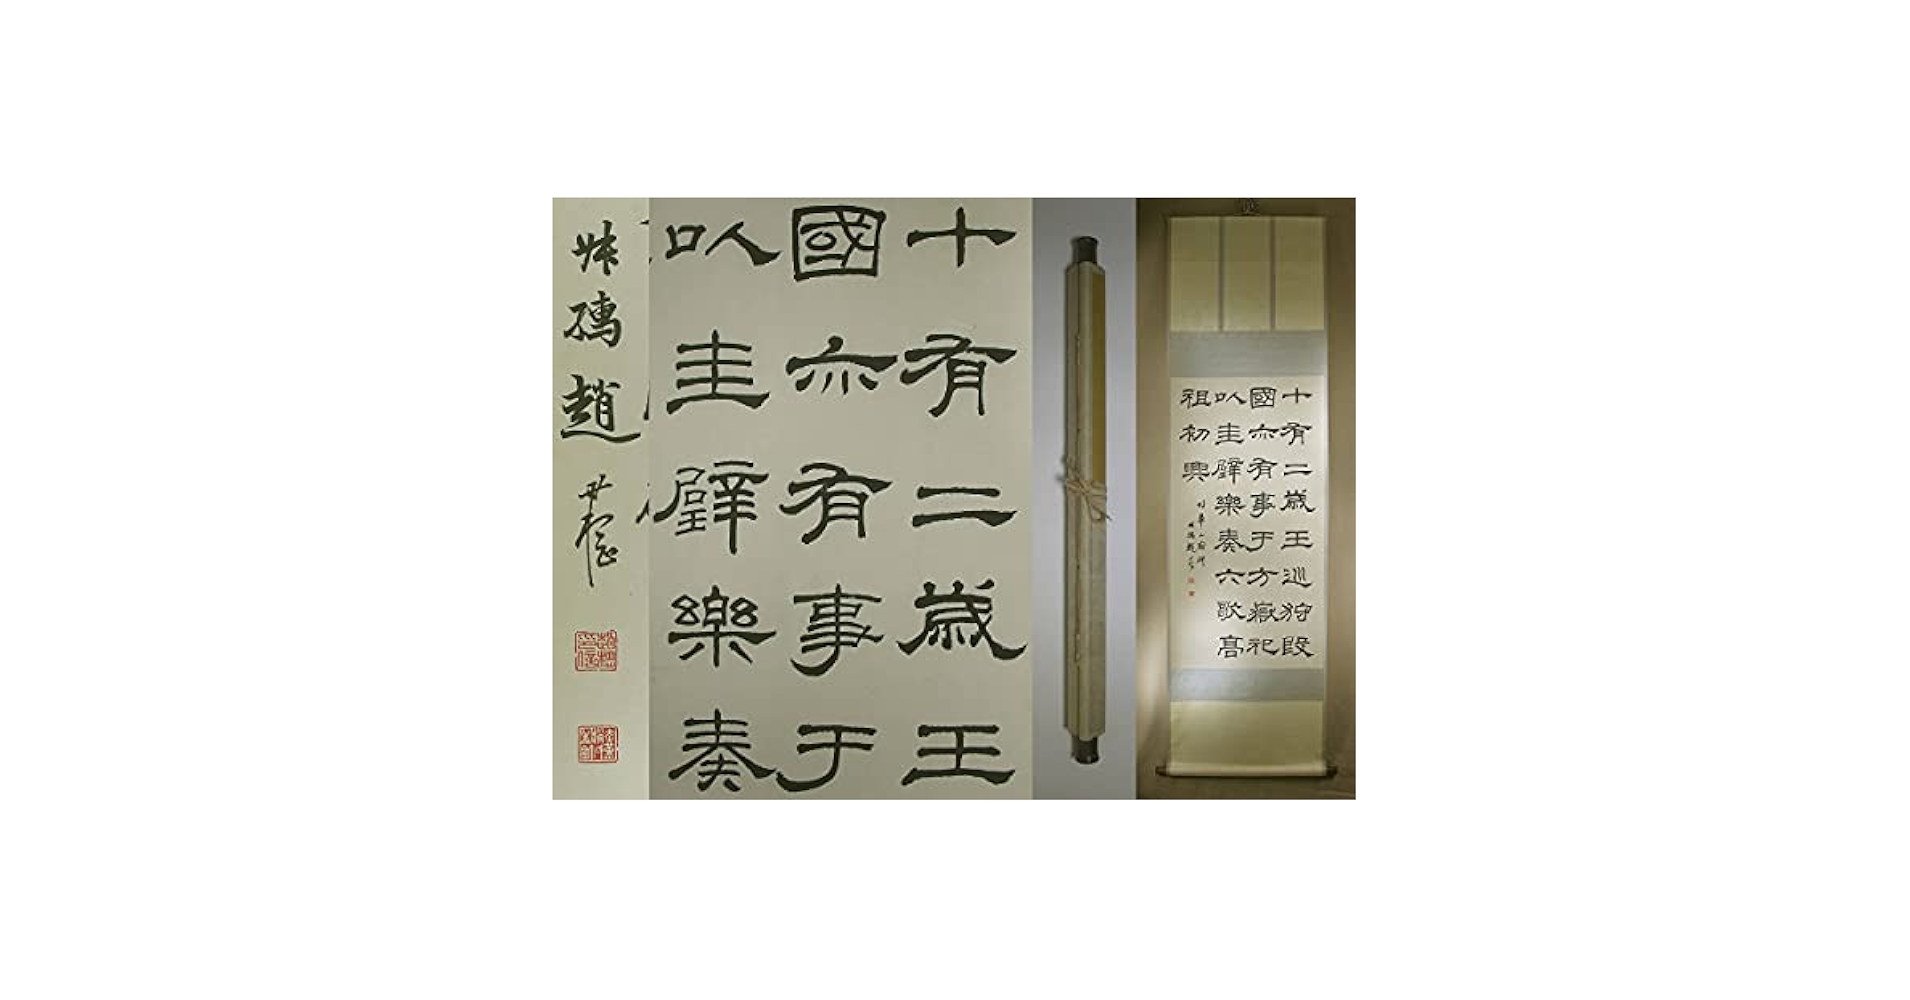 十有二歲王巡狩殷
國亦有事于方嶽祀
以圭璧樂奏六歌高
祖初興
十有二歲王
國亦有事于
以圭璧樂奏
趙